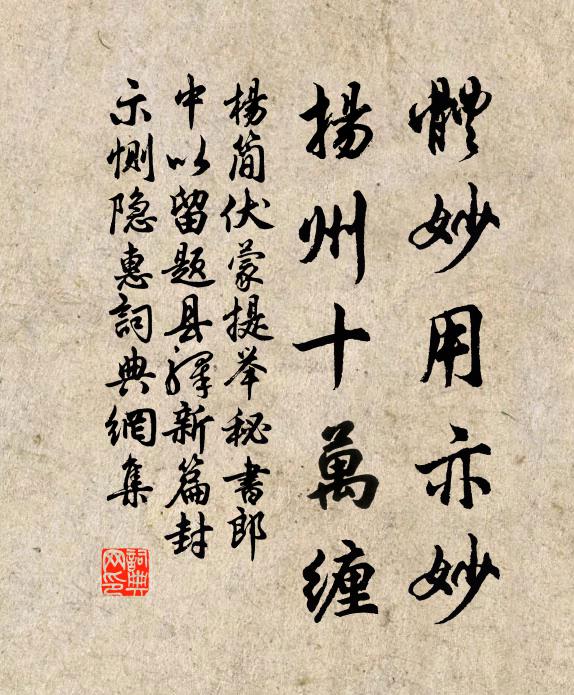 體妙用亦妙
揚州十萬纏
楊简伏蒙提举秘書郎
中以留题县驿新篇封
示恻隐惠詞典網集
詞典网印